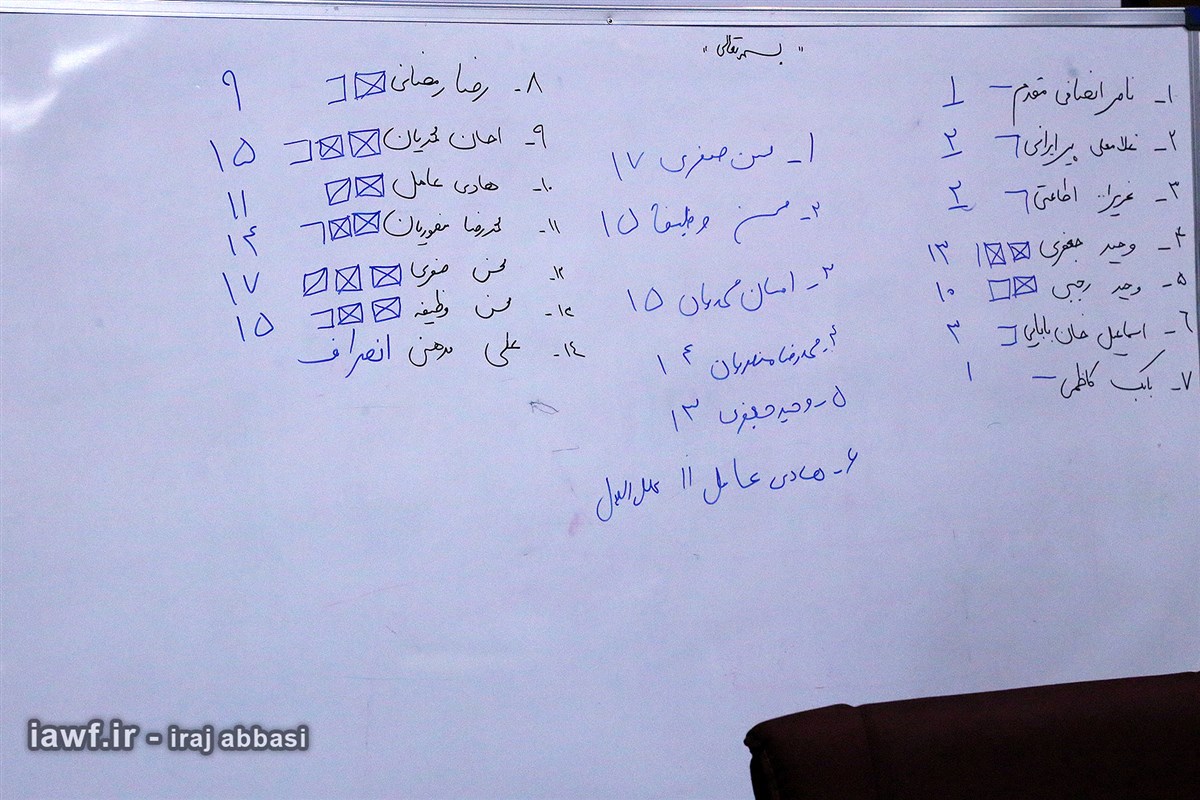 "بسمه تعالی"
۱- ناصر انصافی مقدم ۱
۲- غلامعلی پیرایرانی ۲
۳- عزیزاله اطاعتی ۲
۴- وحید جعفری ۱۳
۵- وحید رجبی ۱۰
۶- اسماعیل خان بابایی ۳
۷- بابک کاظمی ۱
۱- محسن صفری ۱۷
۲- محسن وظیفه ۱۵
۳- احسان محمدیان ۱۵
۴- محمدرضا منصوریان ۱۴
۵- وحید جعفری ۱۳
۶- هادی عامل ۱۱ علی البدل
۸- رضا رمضانی ۹
۹- احسان محمدیان ۱۵
۱۰- هادی عامل ۱۱
۱۱- محمدرضا منصوریان ۱۴
۱۲- محسن صفری ۱۷
۱۳- محسن وظیفه ۱۵
۱۴- علی انصراف
iawf.ir - iraj abbasi